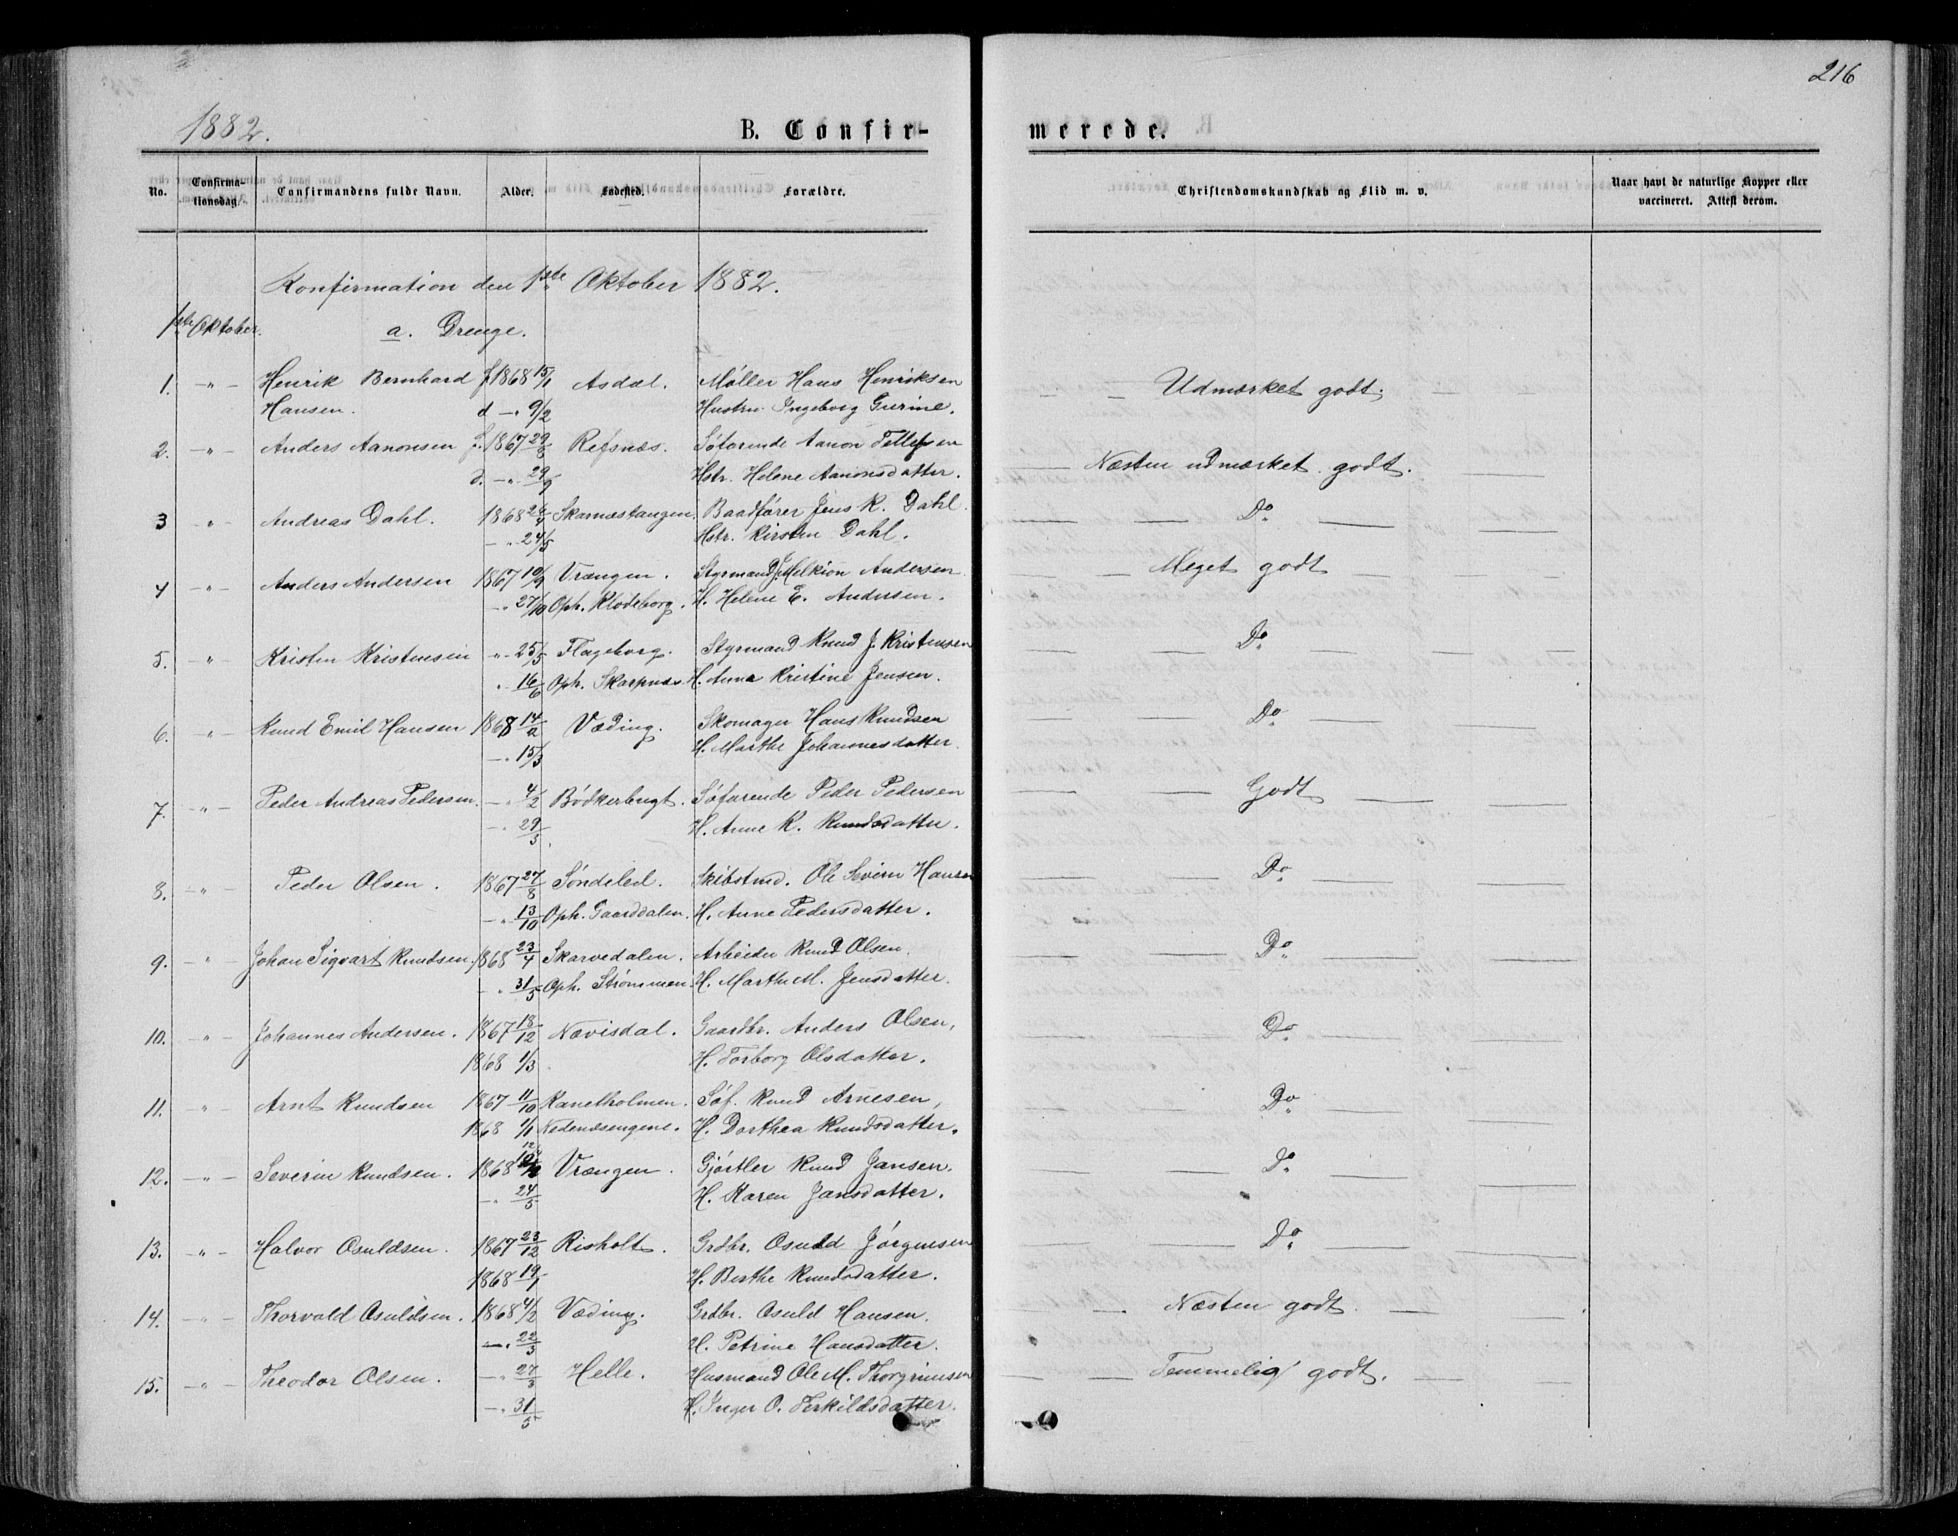 216
1882.
B. Confirmerede.
No. Confirmationsdag. Confirmandens fulde Navn. Alder. Fødested. Forældre. Christendomskundskab og Flid m. v. Naar havt de naturlige Kopper eller vaccineret. Attest derom.
Konfirmation den 1ste Oktober 1882.
1ste Oktober. a. Drenge.
1. -"- Henrik Bernhard f 1868 15/1 Asdal. Møller Hans Henriksen Udmærket godt.
Hansen. d -"- 9/2 Hustru Ingeborg Gurine.
2. -"- Anders Aanonsen f. 1867 29/8 Refsnæs. Søfarende Aanon Tellefsen Næsten udmærket godt.
d. -"- 29/9 Hstr. Helene Aanonsdatter.
3 -"- Andreas Dahl. 1868 26/4 Skarnæstangen. Baadfører Jens K. Dahl Do
-"- 24/5 Hstr. Kirsten Dahl.
4 -"- Anders Andersen 1867 10/9 Vrængen. Styrmand J Melkion Andersen Meget godt
-"- 27/10 Oph. Klodeborg. H. Helene E. Andersen.
5. -"- Kristen Kristensen -"- 25/5 Flageborg. Styrmand Knud J. Kristensen Do
" 16/6 Oph. Skarpnæs H. Anna Kristine Jensen.
6. -"- Knud Emil Hansen 1868 14/2 Væding. Skomager Hans Knudsen Do
-"- 15/3 H. Marthe Johannesdatter.
7. -"- Peder Andreas Pedersen. -"- 4/2 Bødkerbugt. Søfarende Peder Pedersen Godt
-"- 29/5. H. Anne K. Knudsdatter.
8. -"- Peder Olsen. 1867 27/8 Søndeled. Skibstmd. Ole Severin Hansen Do
-"- 13/10 Oph. Gaarddalen. H. Anne Pedersdatter.
9. -"- Johan Sigvart Knudsen. 1868 23/4 Skarvedalen. Arbeider Knud Olsen. Do
-"- 31/5 Oph. Strømmen. H. Marthe M. Jensdatter.
10. -"- Johannes Andersen. 1867 18/12 Nævisdal. Gaardbr. Anders Olsen, Do
1868 1/3 H. Torborg Olsdatter.
11. -"- Arnt Knudsen 1867 11/10 Kanelholmen. Søf. Knud Arnesen, Do
1868 1/1 Nedenæsengene. H. Dorthea Knudsdatter.
12. -"- Severin Knudsen. 1868 Vrængen. Gjørtler Knud Jansen. Do
-"- 24/5 H. Karen Jansdatter.
13. -"- Halvor Osuldsen. 1867 23/12 Risholt. Grdbr. Osuld Jørgensen Do
1868 19/1 H. Berthe Knudsdatter.
14. -"- Thorvald Osuldsen. 1868 4/2 Væding. Grdbr. Osuld Hansen. Næsten godt.
-"- 22/3 H. Petrine Hansdatter.
15. -"- Theodor Olsen. -"- 27/3 Helle. Husmand Ole M. Thorgrimsen Temmelig godt.
-"- 31/5 H. Inger O. Terkildsdatter.